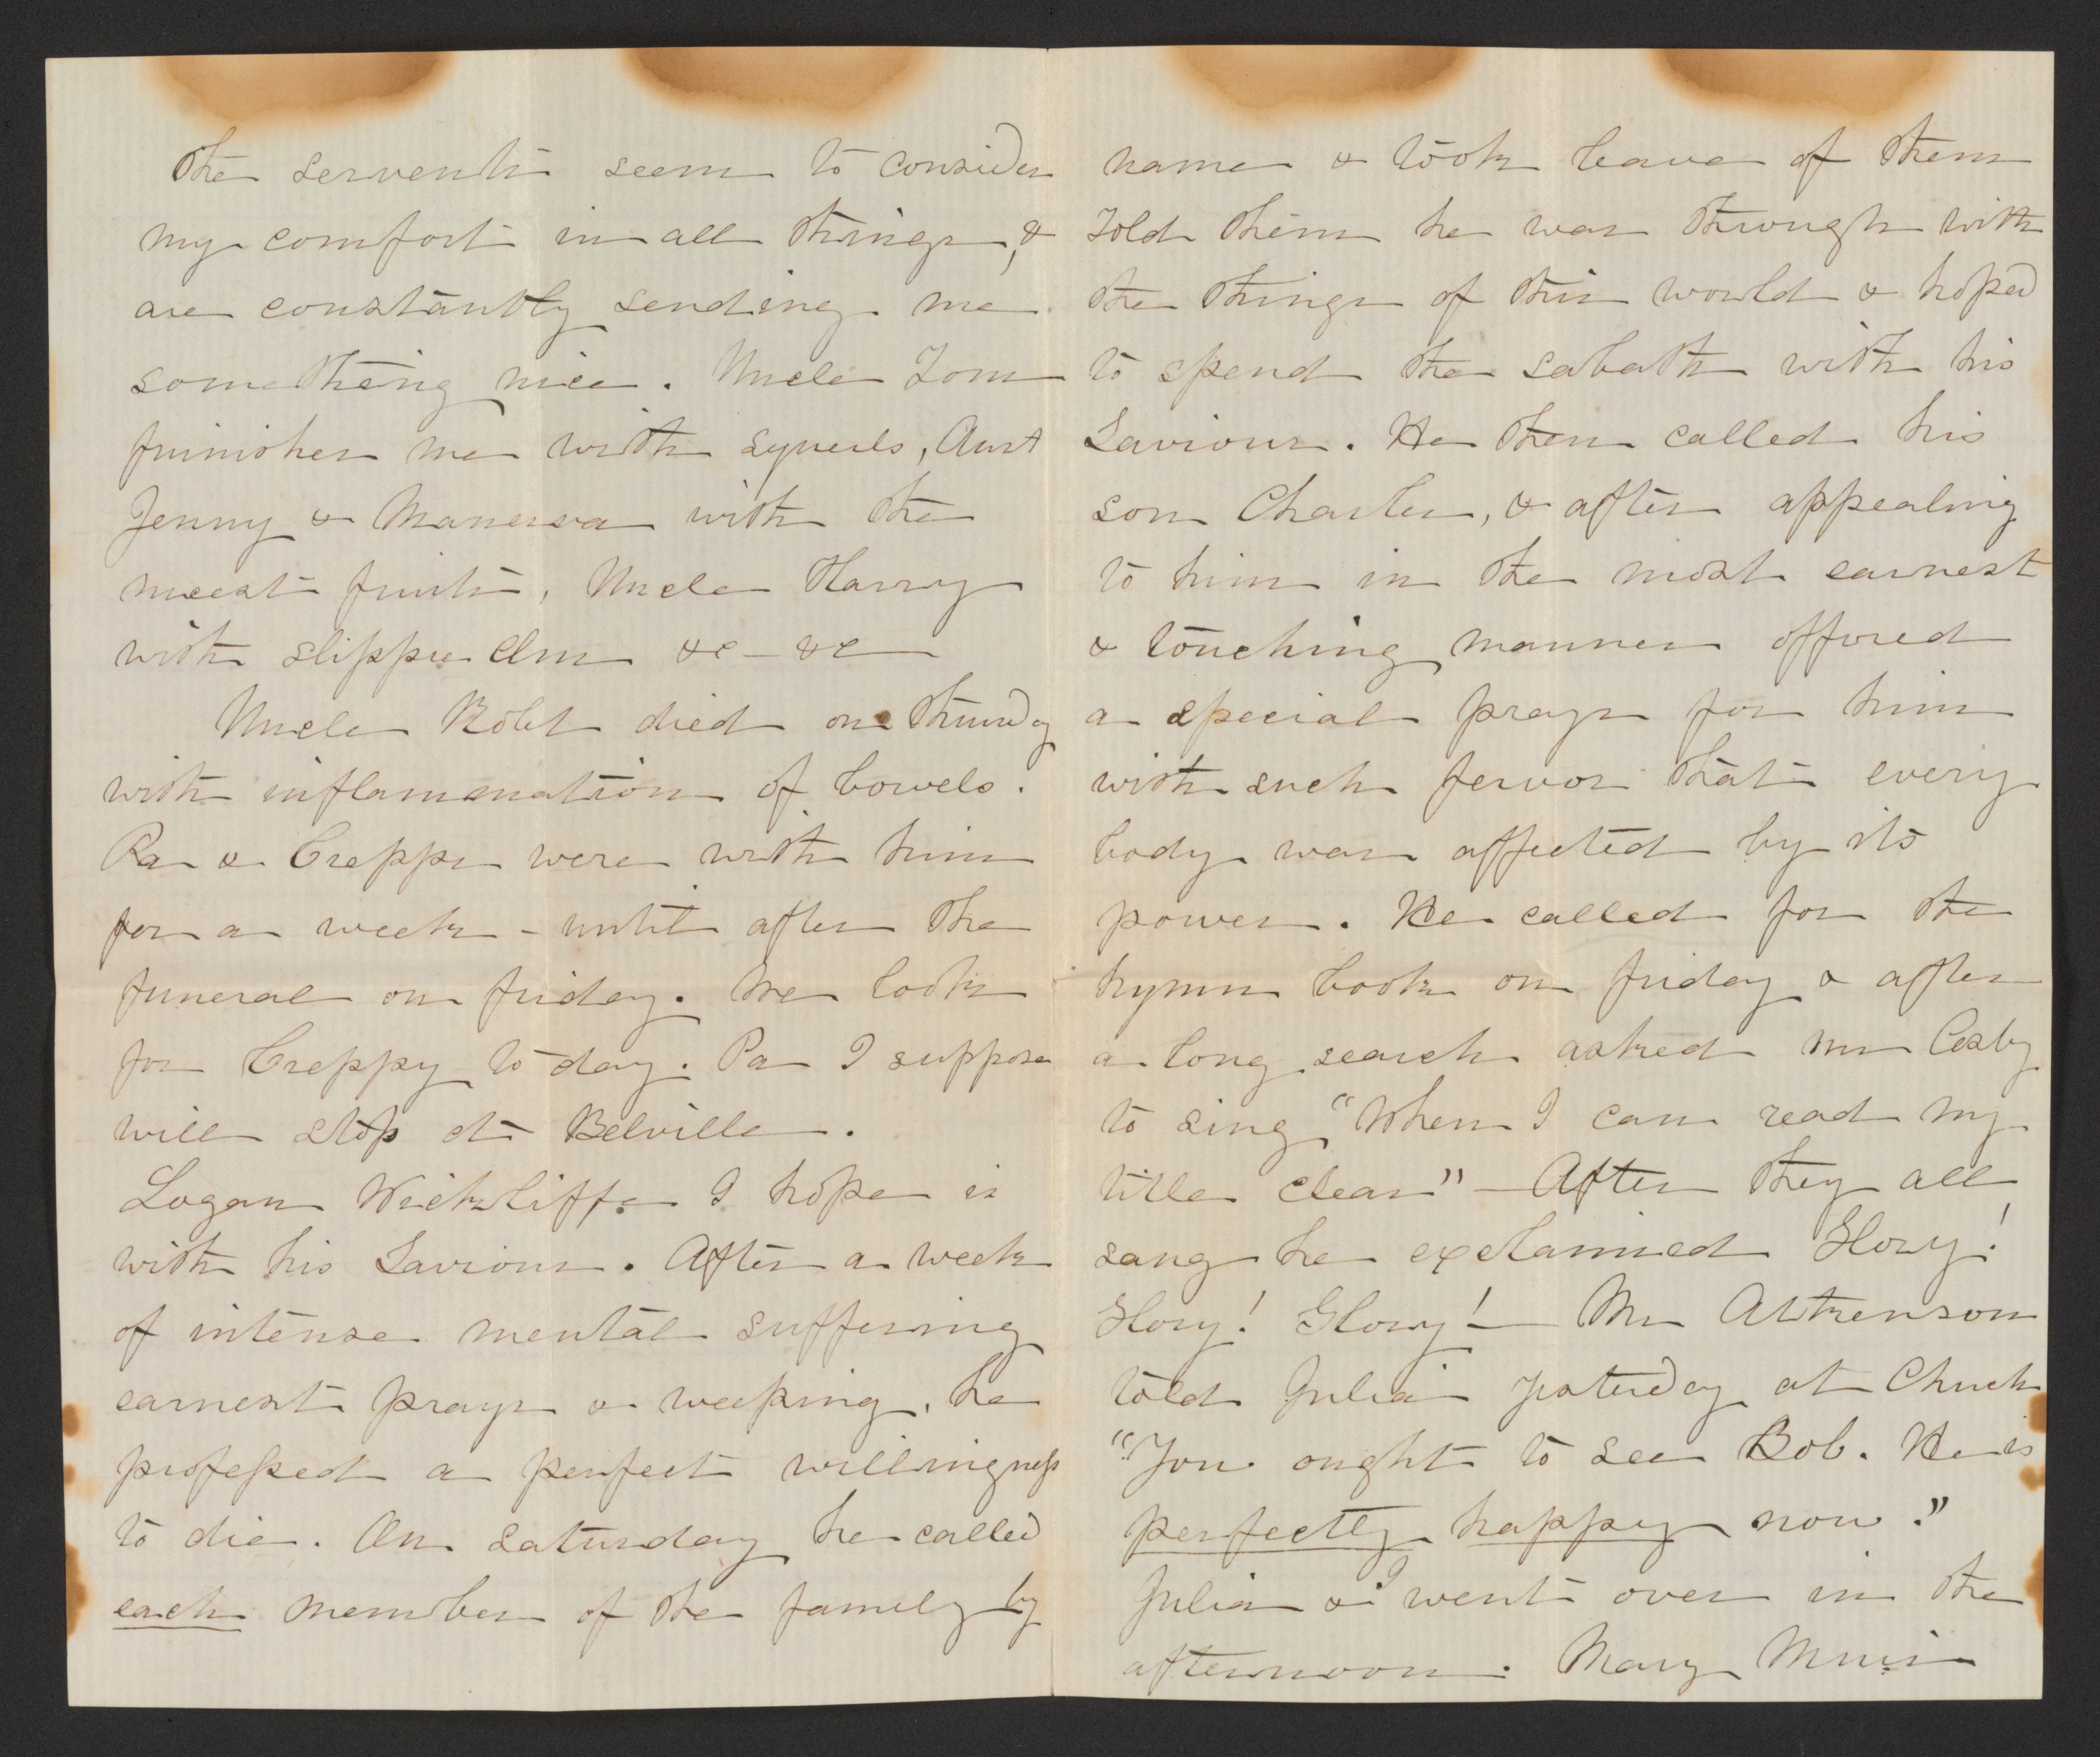 The servents seem to consider
my comfort in all things, &
are constantly sending me
something nice. Uncle Tom
furnishes me with squrels, Aunt
Jenny & Manerva with the
nicest fruits, Uncle Harry
with slippre Elm &c - &c
Uncle Robt died on Thursday
with inflammation of bowels.
Pa & Creppy were with him
for a week - until after the
funeral on friday. We look
for Creppy to day. Pa I suppose
will stop at Belville.
Logan Wickliffe I hope is
with his Saviour. After a week
of intense mental suffering
earnest prayr & weeping, he
professed a perfect willingness
to die. On Saturday he called
each member of the family by
name & took leave of them
Told them he was through with
the things of this world & hoped
to spend the sabath with his
Saviour. He then called his
son Charles, & after appealing
to him in the most earnest
& touching manner offored
a special prayr for him
with such fervor that every
body was affected by its
power. He called for the
hymn book on friday & after
a long search asked Mr
to sing "When I can read my
title clear" - After they all
sang he exclaimed Glory!
Glory! Glory! - Mr Atkenson
told Julia yesterday at Church
"You ought to see Bob. He is
perfectly happy now."
Julia & I went over in the
afternoon. Mary Muir